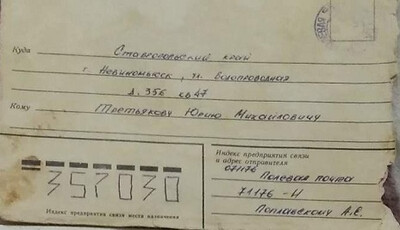 Куда Ставропольский край
г. Невинномысск, ул. Водопроводная
д. 356 кв 47
Кому Третьякову Юрию Михайловичу
357030
Индекс предприятия связи места назначения
Индекс предприятия связи
и адрес отправителя
071176
Полевая почта
71176-И
Поплавскому А.Е.